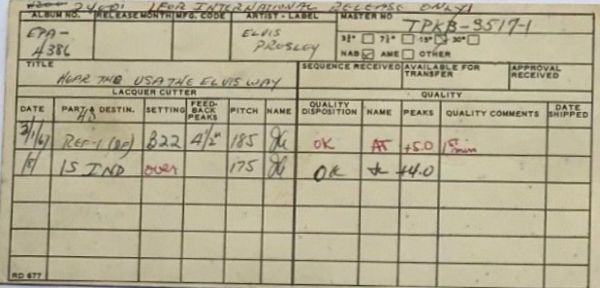 (FOR INTERNATIONAL RELEASE ONLY)
ALBUM NO. RELEASE MONTH MFG. CODE ARTIST - LABEL MASTER NO
EPA- ELVIS TPKB-3517-1
4386 PRESLEY 3¾" 7½" 15" 30"
NAB AME OTHER
TITLE SEQUENCE RECEIVED AVAILABLE FOR TRANSFER APPROVAL RECEIVED
HEAR THE USA THE ELVIS WAY
LACQUER CUTTER QUALITY
DATE PART & DESTIN. SETTING FEED-BACK PEAKS PITCH NAME QUALITY DISPOSITION NAME PEAKS QUALITY COMMENTS DATE SHIPPED
REF-1 322 4½" 185 OK AT +5.0 1st min
1S IND over 175 OK +4.0
RD 677